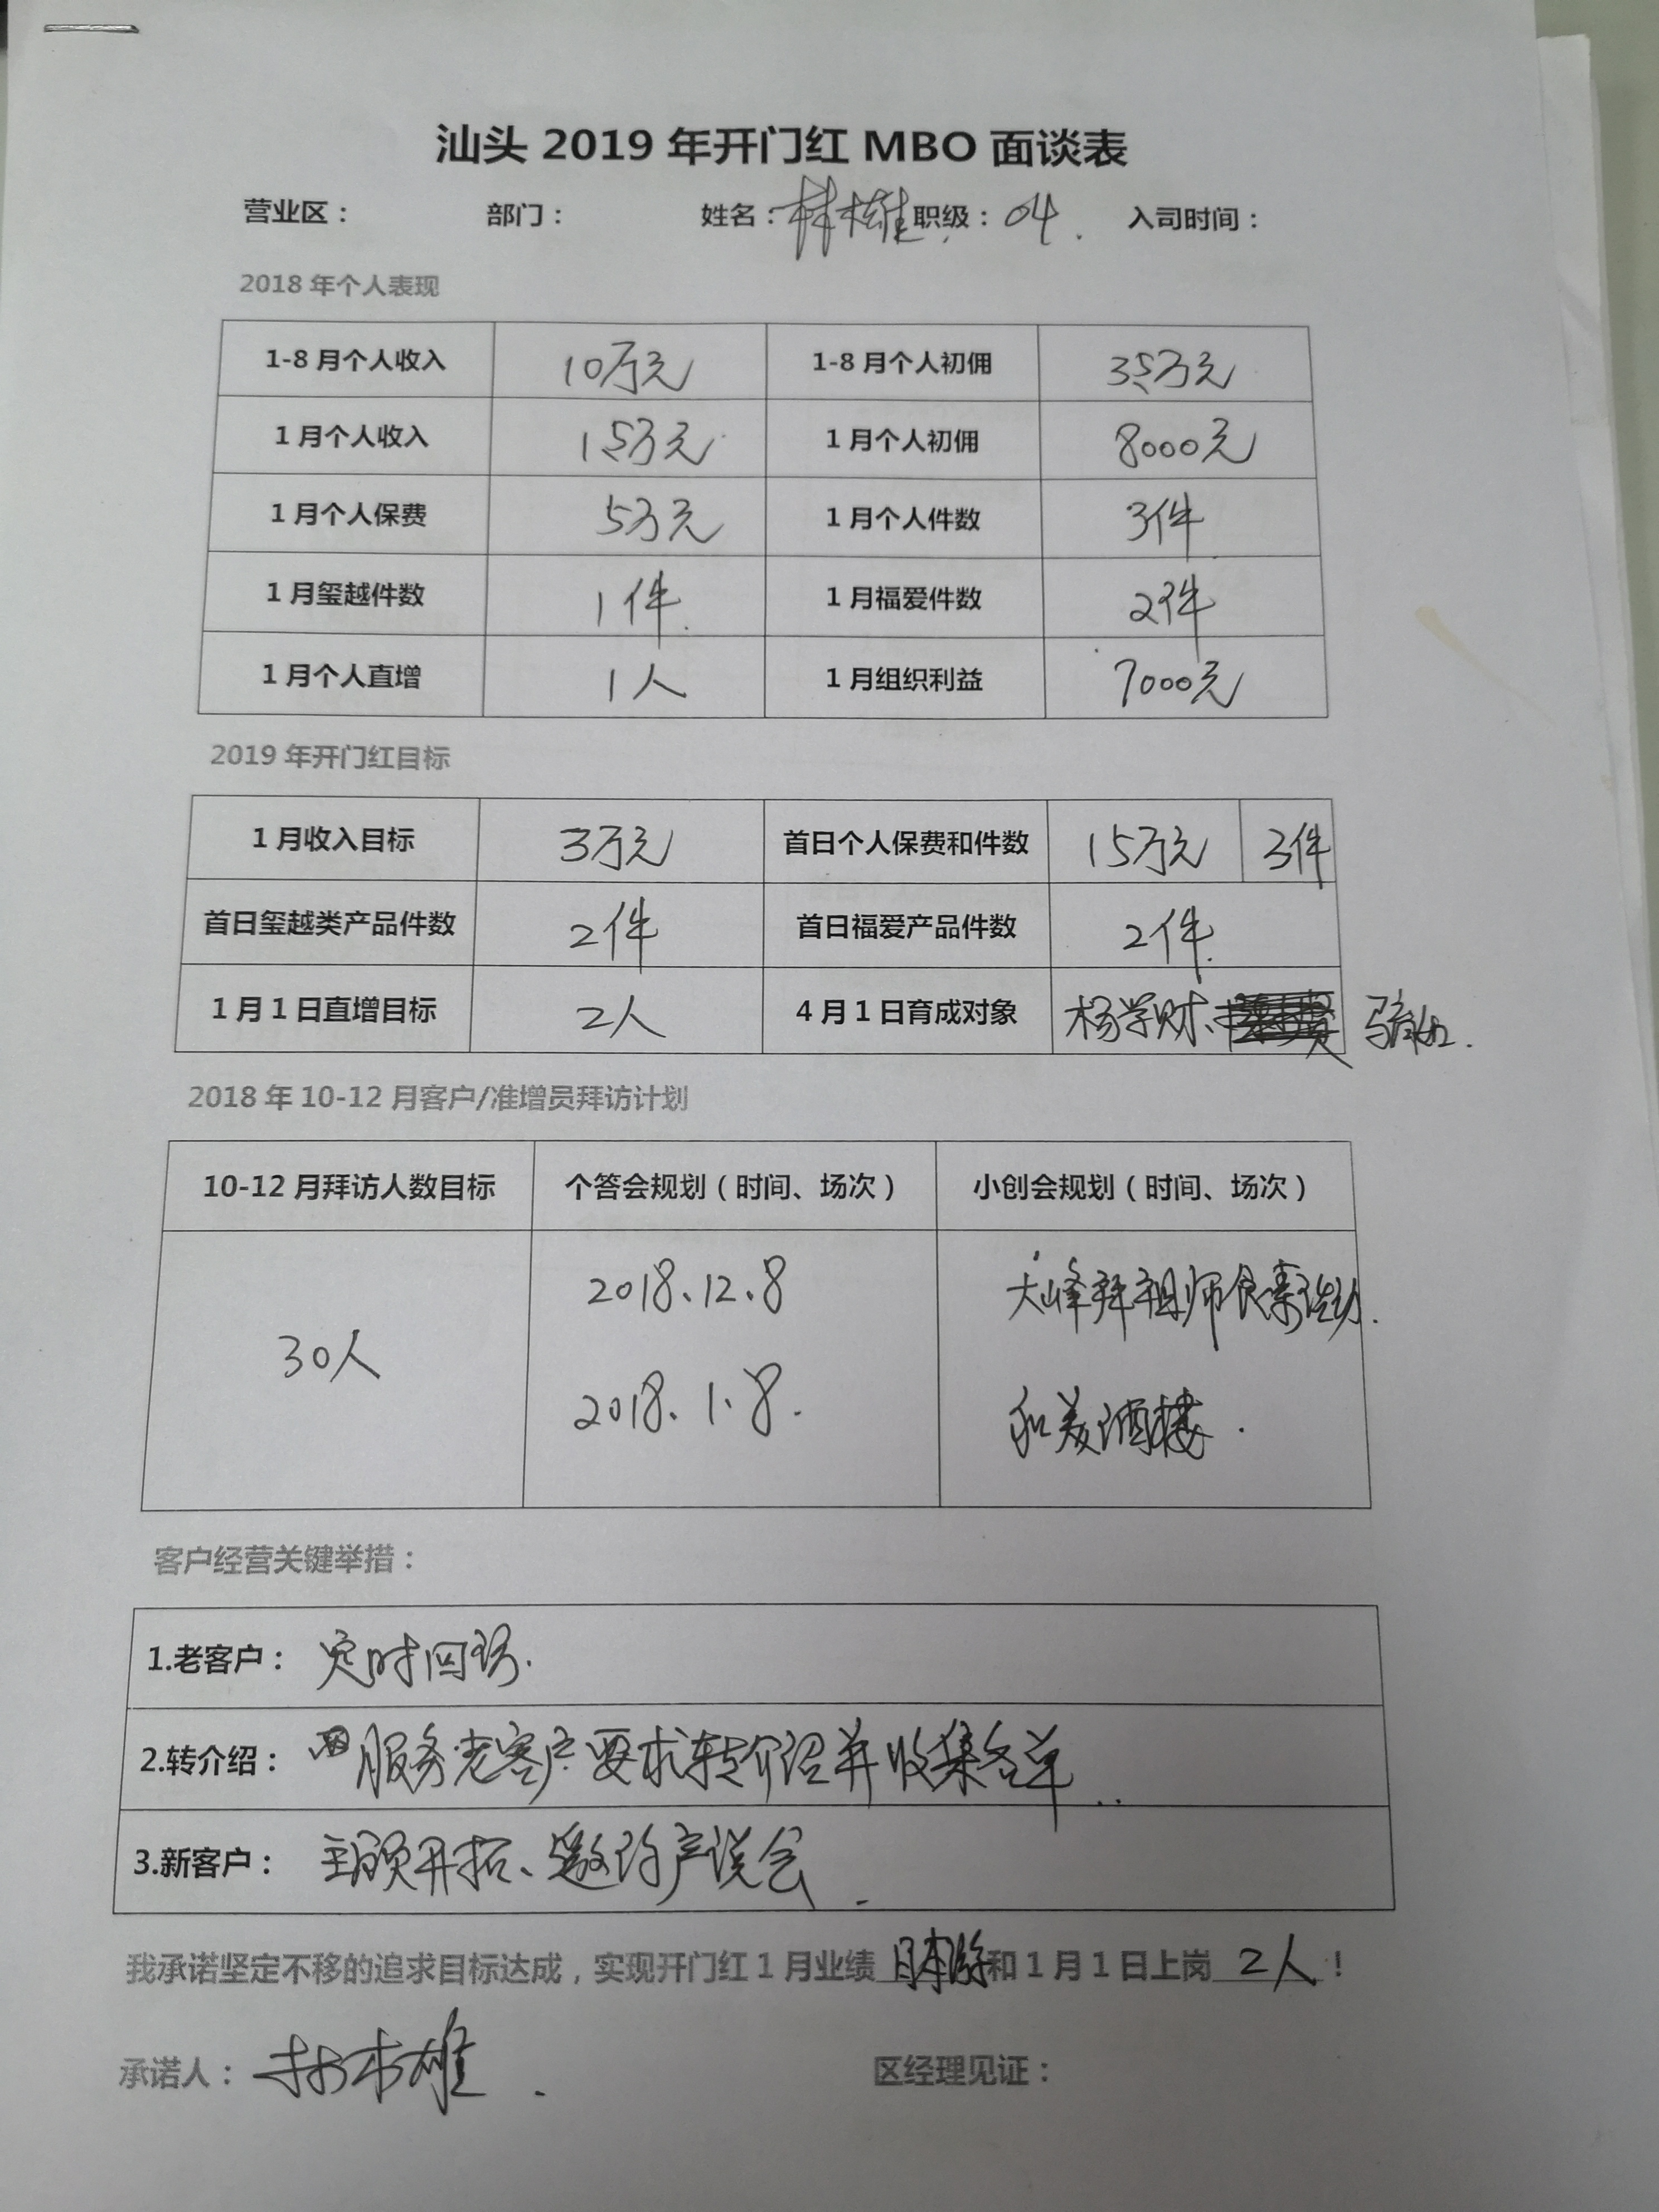 汕头 2019 年开门红 MBO 面谈表
营业区： 部门： 姓名：林木雄 职级：04. 入司时间：
2018 年个人表现
1-8 月个人收入 10万元 1-8 月个人初佣 3.5万元
1 月个人收入 1.5万元 1 月个人初佣 8000元
1 月个人保费 5万元 1 月个人件数 3件
1 月玺越件数 1件 1 月福爱件数 2件
1 月个人直增 1人 1 月组织利益 7000元
2019 年开门红目标
1 月收入目标 3万元 首日个人保费和件数 15万元 3件
首日玺越类产品件数 2件 首日福爱产品件数 2件
1 月 1 日直增目标 2人 4 月 1 日育成对象 杨学财、
2018 年 10-12 月客户/准增员拜访计划
10-12 月拜访人数目标 个答会规划（时间、场次） 小创会规划（时间、场次）
30人 2018.12.8 大峰拜祖师食素活动.
2018.1.8. 和美酒楼.
客户经营关键举措：
1.老客户： 定时回访.
2.转介绍： 服务老客户要求转介绍并收集名单..
3.新客户： 主顾开拓、邀约产说会.
我承诺坚定不移的追求目标达成，实现开门红 1 月业绩 日本游 和 1 月 1 日上岗 2人！
承诺人：林木雄. 区经理见证：